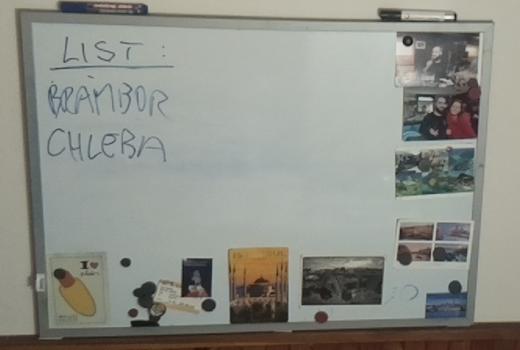 LIST:
BRAMBOR
CHLEBA
I ♥